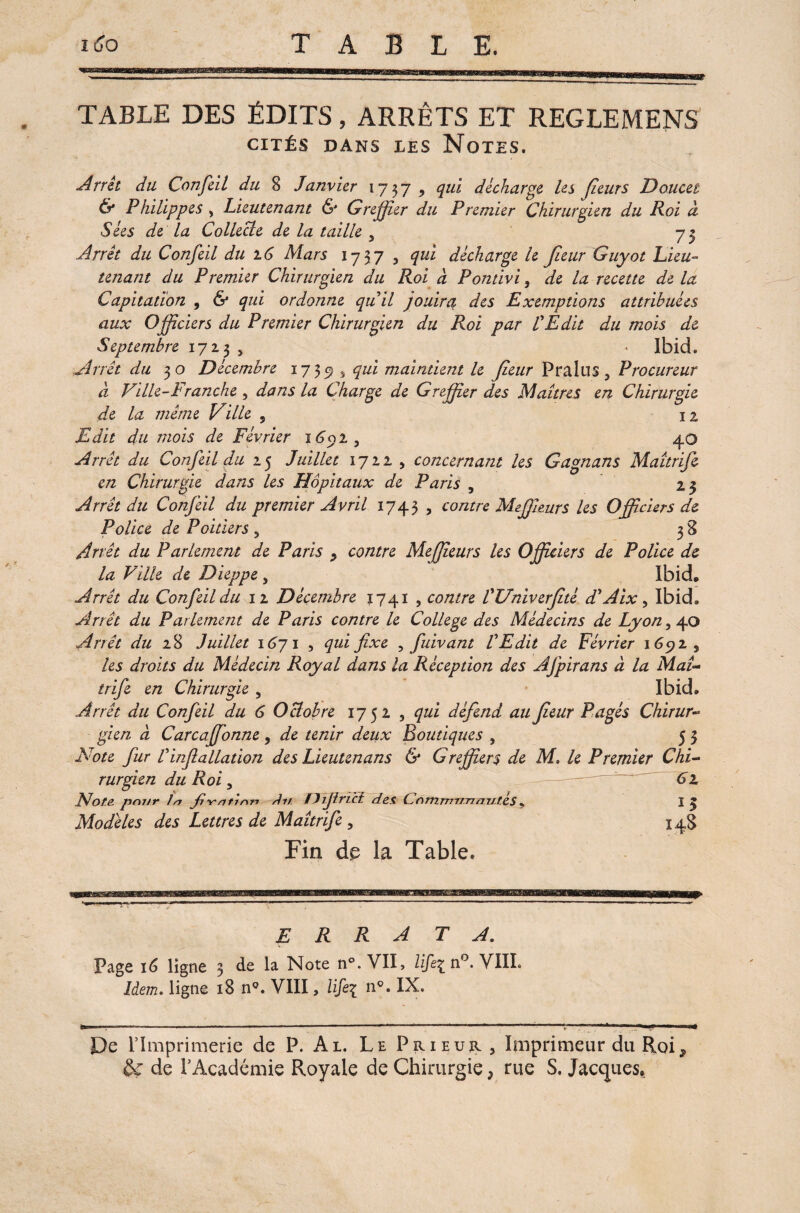 160 TABLE.
TABLE DES ÉDITS, ARRÊTS ET REGLEMENS
CITÉS DANS LES NOTES.
Arrêt du Conſeil du 8 Janvier 1737, qui décharge les ſieurs Doucet
& Philippes, Lieutenant & Greffier du Premier Chirurgien du Roi à
Sées de la Collecte de la taille, 73
Arrêt du Conſeil du 26 Mars 1737, qui décharge le ſieur Guyot Lieu-
tenant du Premier Chirurgien du Roi à Pontivi, de la recette de la
Capitation, & qui ordonne qu'il jouira des Exemptions attribuées
aux Officiers du Premier Chirurgien du Roi par l'Edit du mois de
Septembre 1723, Ibid.
Arrêt du 30 Décembre 1739, qui maintient le ſieur Pralus, Procureur
à Ville-Franche, dans la Charge de Greffier des Maîtres en Chirurgie
de la même Ville, 12
Edit du mois de Février 1692, 40
Arrêt du Conſeil du 25 Juillet 1722, concernant les Gagnans Maîtriſe
en Chirurgie dans les Hôpitaux de Paris, 23
Arrêt du Conſeil du premier Avril 1743, contre Meſſieurs les Officiers de
Police de Poitiers, 38
Arrêt du Parlement de Paris, contre Meſſieurs les Officiers de Police de
la Ville de Dieppe, Ibid.
Arrêt du Conſeil du 12 Décembre 1741, contre l'Univerſité d'Aix, Ibid.
Arrêt du Parlement de Paris contre le College des Médecins de Lyon, 40
Arrêt du 28 Juillet 1671, qui fixe, ſuivant l'Edit de Février 1692,
les droits du Médecin Royal dans la Réception des Aſpirans à la Maî-
triſe en Chirurgie, Ibid.
Arrêt du Conſeil du 6 Octobre 1752, qui défend au ſieur Pagés Chirur-
gien à Carcaſſonne, de tenir deux Boutiques, 53
Note ſur l'inſtallation des Lieutenans & Greffiers de M. le Premier Chi-
rurgien du Roi, 62
Note pour la fixation du Diſtrict des Communautés, 15
Modèles des Lettres de Maîtriſe, 148
Fin de la Table.
ERRATA.
Page 16 ligne 3 de la Note n°. VII, liſez n°. VIII.
Idem. ligne 18 n°. VIII, liſez n°. IX.
De l'Imprimerie de P. AL. LE PRIEUR, Imprimeur du Roi,
& de l'Académie Royale de Chirurgie, rue S. Jacques.